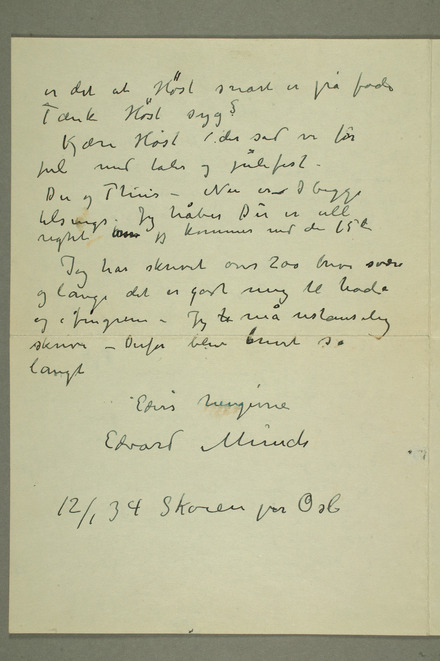 er det at Høst snart er på fode
Tænk Høst syg?
Kjære Høst der sad vi før
jul med taler og julefest.
Du og Thiis – Nu er I begge
tilsengs. Jeg håber Du er all
right jeg kommer ned den 15de
Jeg har skrevet over 200 breve svære
og lange det er gåt mig til hode
og i fingrene – Jeg må ustanselig
skrive – Derfor blev brevet så
langt
Eders hengivne
Edvard Munch
12/1 34 Skøien per Oslo